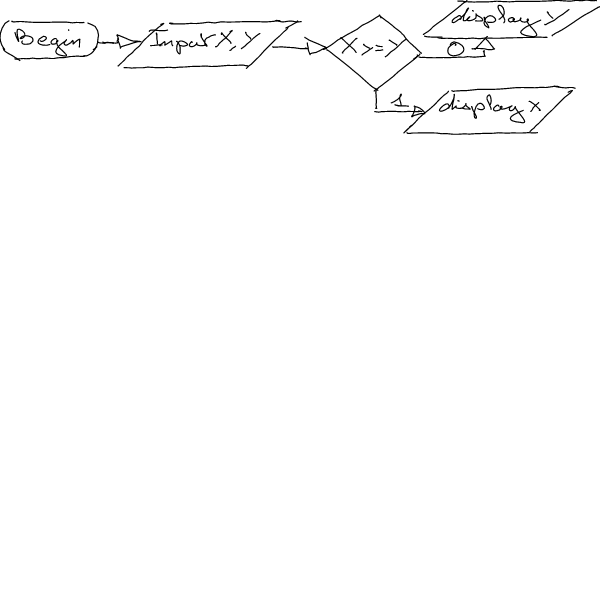 Begin
Input X, Y
X >= Y
0
display Y
1
display x